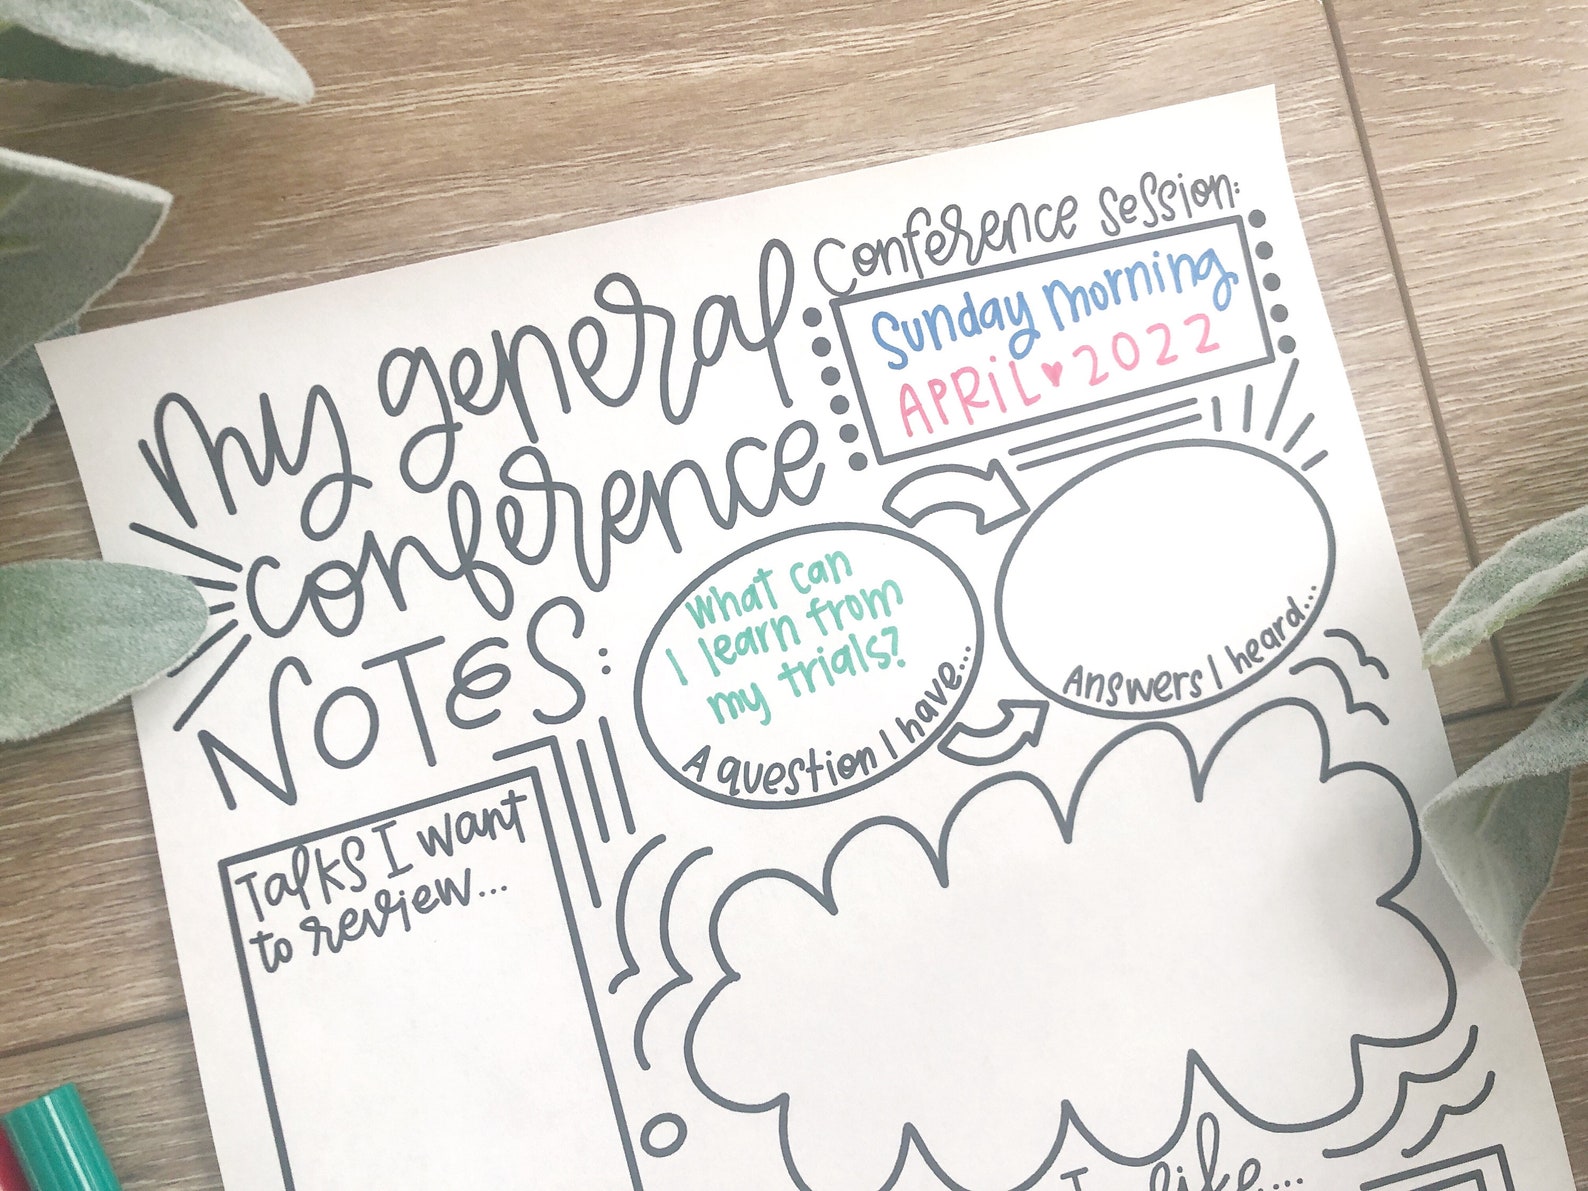 my general
conference
NOTES:
Conference Session:
Sunday Morning
APRiL ♥ 2022
What can
I learn from
my trials?
A question I have...
Answers I heard...
Talks I want
to review...
I like...